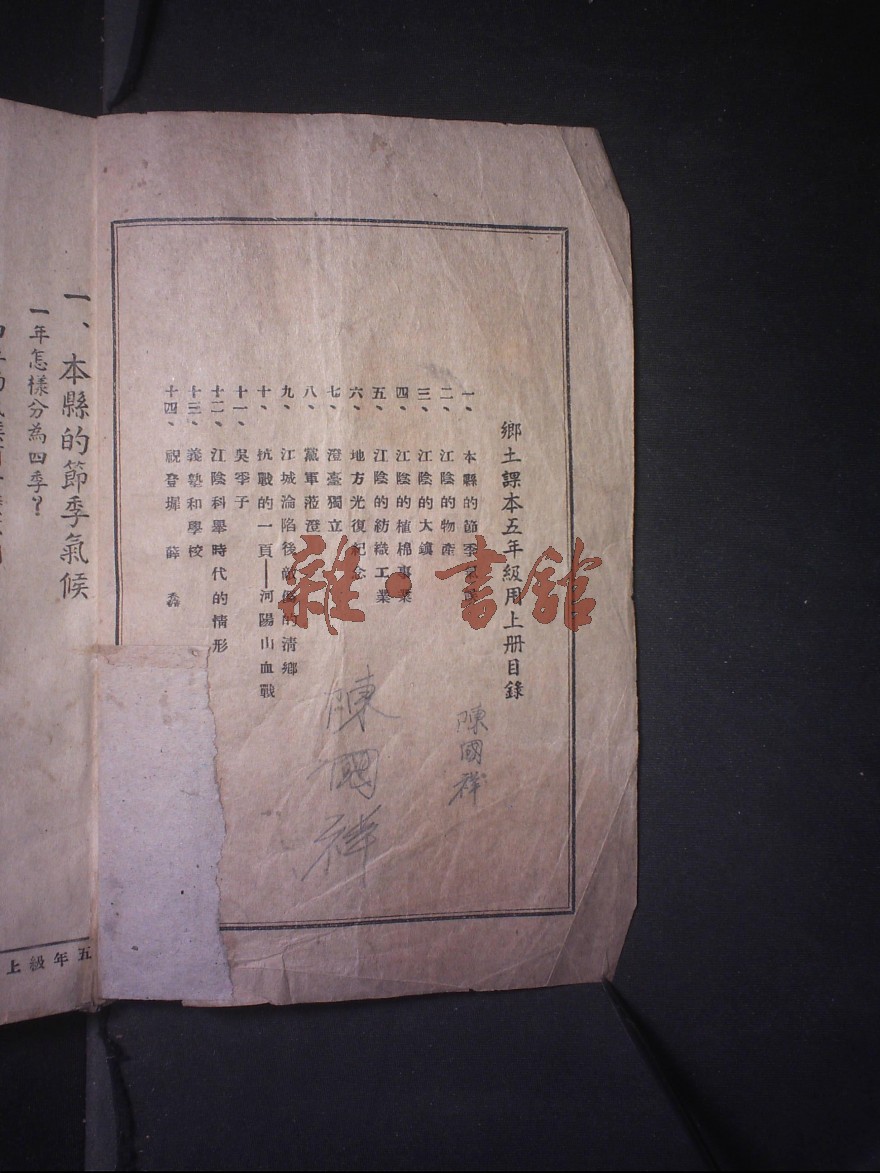 鄉土課本五年級用上册目錄
一、本縣的節季氣候
二、江陰的物產
三、江陰的大鎮
四、江陰的植棉事業
五、江陰的紡織工業
六、地方光復紀念
七、澄臺獨立
八、黨軍蒞澄
九、江城淪陷後敵僞的清鄉
十、抗戰的一頁——河陽山血戰
十一、吳季子
十二、江陰科舉時代的情形
十三、義塾和學校
十四、祝登墀 薛
陳國祥
陳國祥
雜·書館
一、本縣的節季氣候
一年怎樣分為四季？
五年級上